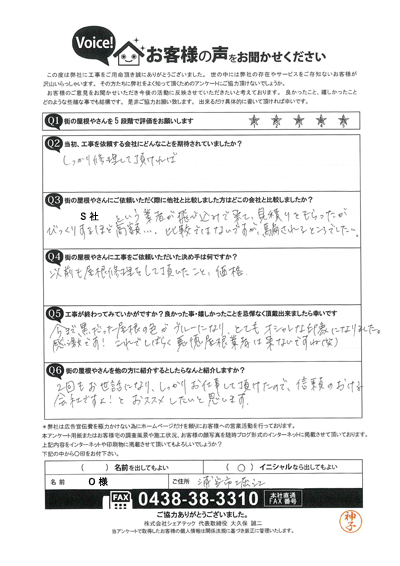 Voice!
お客様の声をお聞かせください
この度は弊社に工事をご用命頂き誠にありがとうございました。 世の中には弊社の存在やサービスをご存知ないお客様が
沢山いらっしゃいます。 その方たちに弊社をよく知って頂くためのアンケートにご協力頂けないでしょうか。
お客様のご意見をお聞かせいただき今後の活動に反映させていただきたいと考えております。 良かったこと、嬉しかったこと
どのような些細な事でも結構です。 是非ご協力お願い致します。 出来るだけ具体的に書いて頂ければ幸いです。
Q1 街の屋根やさんを5段階で評価をお願いします ★ ★ ★ ★ ★
Q2 当初、工事を依頼する会社にどんなことを期待されていましたか?
しっかり修理して頂ければ
Q3 街の屋根やさんにご依頼いただく際に他社と比較しました方はどこの会社と比較しましたか?
S社 という業者が飛び込みで来て、見積りをもらったが
びっくりするほど高額…。比較ではないですが、騙されるところでした。
Q4 街の屋根やさんに工事をご依頼いただいた決め手は何ですか?
以前も屋根修理をして頂いたこと、価格
Q5 工事が終わってみていかがですか?良かった事・嬉しかったことを忌憚なく頂戴出来ましたら幸いです
今まで黒だった屋根の色がグレーになり、とてもオシャレな印象になりました。
感激です! これでしばらく悪徳屋根業者は来ないですね(笑)
Q6 街の屋根やさんを他の方に紹介するとしたらなんと紹介しますか?
2回もお世話になり、しっかりお仕事して頂けたので、信頼のおける
会社ですよ!とおススメしたいと思います。
*弊社は広告宣伝費を極力かけない為にホームページだけを頼りにお客様への営業活動を行っております。
本アンケート用紙またはお客様宅の調査風景や施工状況、お客様の顔写真を随時ブログ形式のインターネットに掲載させて頂いております。
上記内容をインターネットや印刷物に掲載させて頂いてもよろしいでしょうか?
下記の中から〇印をお付下さい。
( ) 名前を出してもよい ( 〇 ) イニシャルなら出してもよい
名前 O 様 ご住所 浦安市堀江
FAX 0438-38-3310 本社直通 FAX番号
ご協力ありがとうございました。
株式会社シェアテック 代表取締役 大久保 誠二
当アンケートで取得したお客様の個人情報は関係法規に基づき厳正に管理いたします。
神子